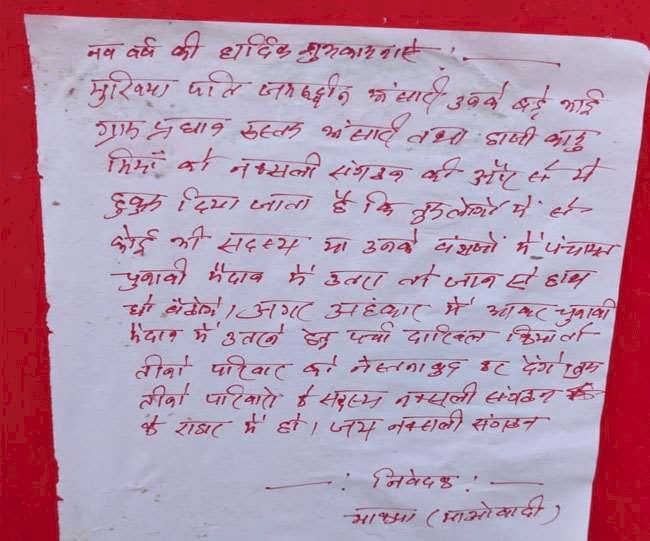 नव वर्ष की हार्दिक शुभकामनाऐं :
मुखिया पति जमरुद्दीन अंसारी उनके बड़े भाई
ग्राम प्रधान रुस्तम अंसारी तथा हाजी कामु
मियाँ को नक्सली संगठन की ओर से ये
हुकुम दिया जाता है कि तुमलोगों में से
कोई भी सदस्य या उनके वंशजों में पंचायत
चुनावी मैदान में उतरा तो जान से हाथ
धो बैठोगे। अगर अहंकार में आकर चुनावी
मैदान में उतरने हेतु पर्चा दाखिल किया तो
तीनों परिवार को नेस्तनाबुद कर देंगे। तुम
तीनों परिवार के सदस्य नक्सली संगठन
के राडार में हो। जय नक्सली संगठन
: निवेदक :
भाकपा (माओवादी)